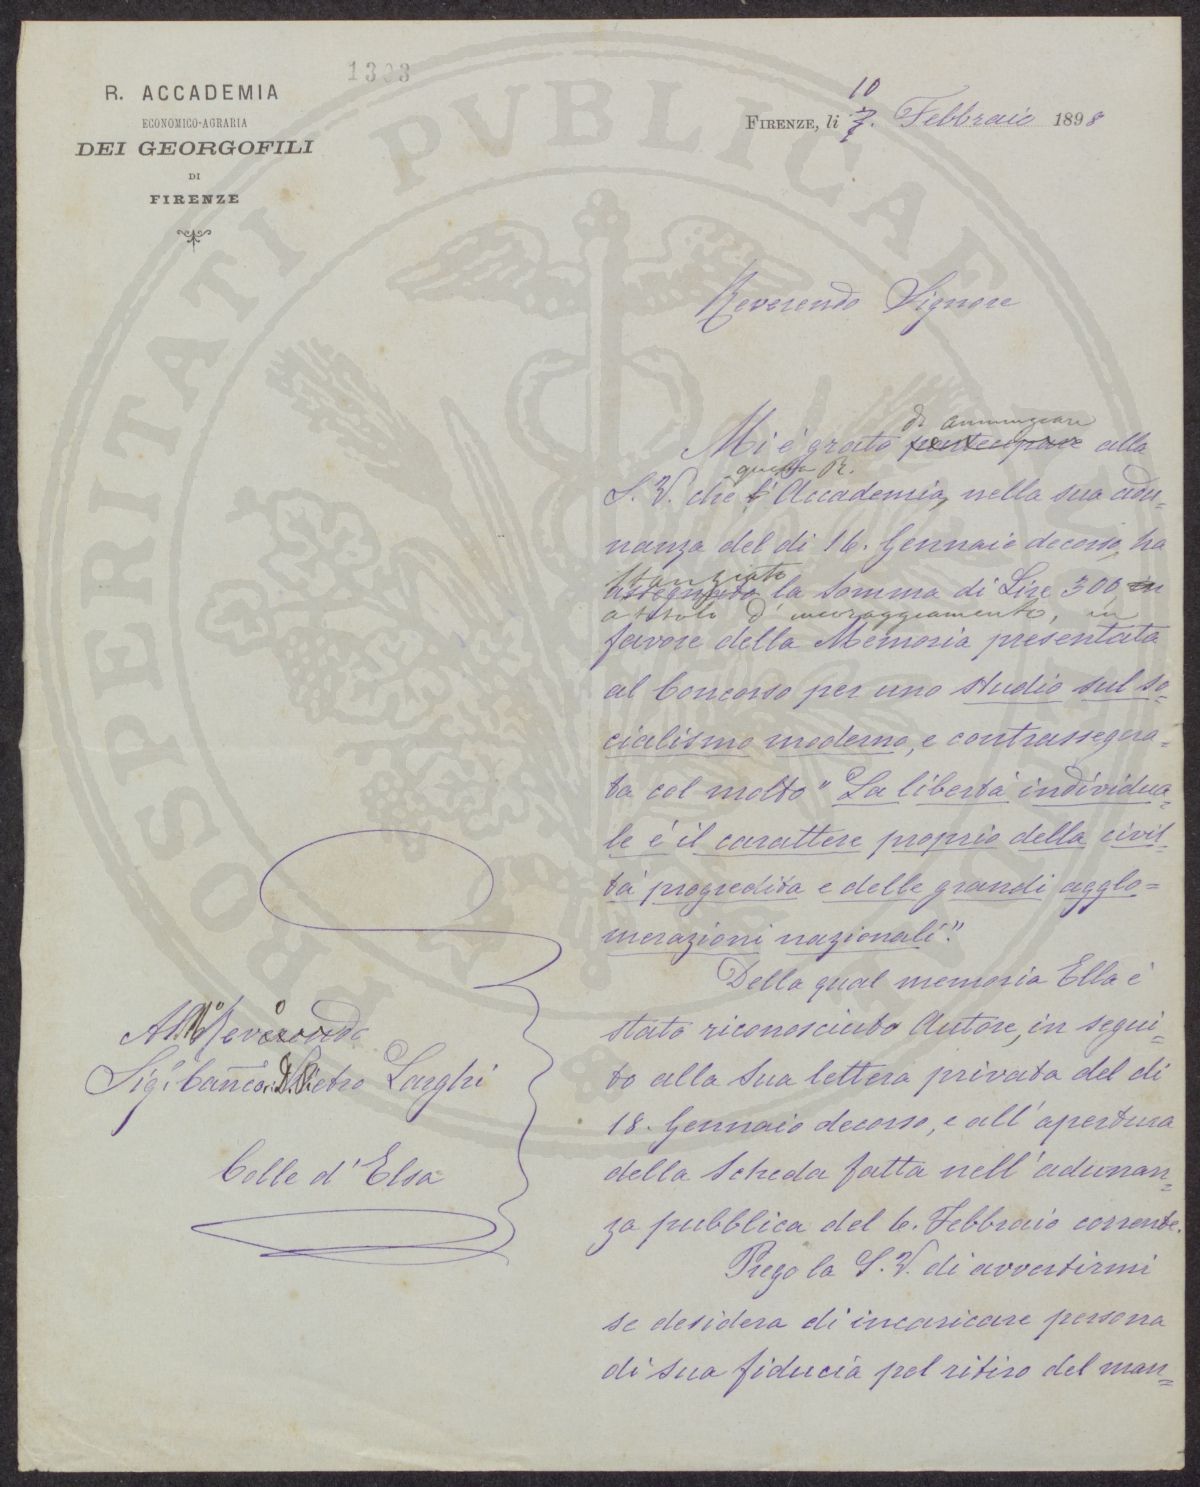 1303
R. ACCADEMIA
ECONOMICO-AGRARIA
DEI GEORGOFILI
DI
FIRENZE
10
FIRENZE, li 7. Febbraio 1898
Reverendo Signore
di annunziare
Mi è grato partecipare alla
questa R.
S. V. che l'Accademia, nella sua adu-
nanza del dì 16. Gennaio decorso, ha
stanziato
assegnato la somma di Lire 300, in
a titolo d'incoraggiamento, in
favore della Memoria presentata
al Concorso per uno studio sul so-
cialismo moderno, e contrassegna-
ta col motto "La libertà individua-
le è il carattere proprio della civil-
tà progredita e delle grandi agglo-
merazioni nazionali".
Della qual memoria Ella è
stato riconosciuto Autore, in segui-
to alla Sua lettera privata del dì
18. Gennaio decorso, e all'apertura
della Scheda fatta nell'adunan-
za pubblica del 6. Febbraio corrente.
Prego la S. V. di avvertirmi
se desidera di incaricare persona
di sua fiducia pel ritiro del man-
Al M° Reverendo
Sig. Can.co D. Pietro Larghi
Colle d'Elsa
PROSPERITATI PVBLICAE